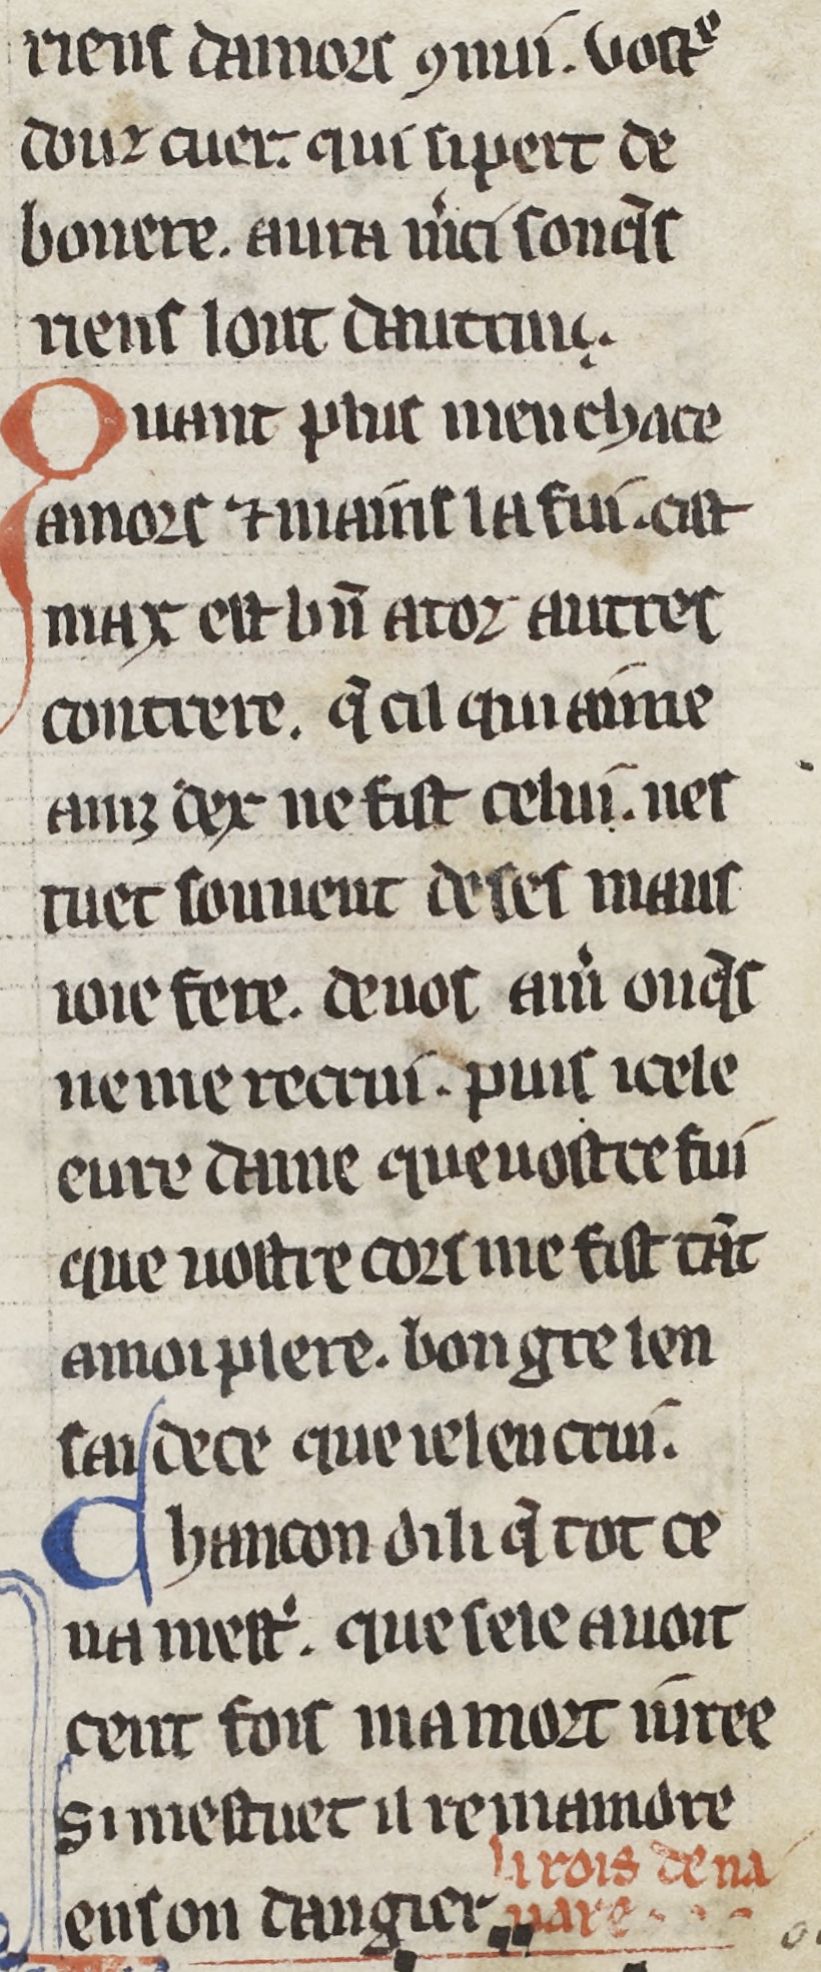 riens damors ꝯnui. vostᵉ
douz cuer. qui si pert de
bonere. aura m̾ci sonq̄s
riens lout dautrui.
Quant plus men chace
amors ⁊ mains la fui. cist
max est bn̄ a toz autres
contrere. q̄ cil qui aime
ainz dex ne fist celui. nes
tuet souuent de ses maus
ioie fere. de uos am̾ onq̄s
ne me recrui. puis icele
eure dame que uostre fui
que uostre cors me fist tāt
a moi plere. bon gre len
sai de ce que ie len crui.
Chancon di li q̄ tot ce
na mest̾. que sele auoit
cent fois ma mort iuree
si mestuet il remanoire
en son dangier
li rois de na
uare